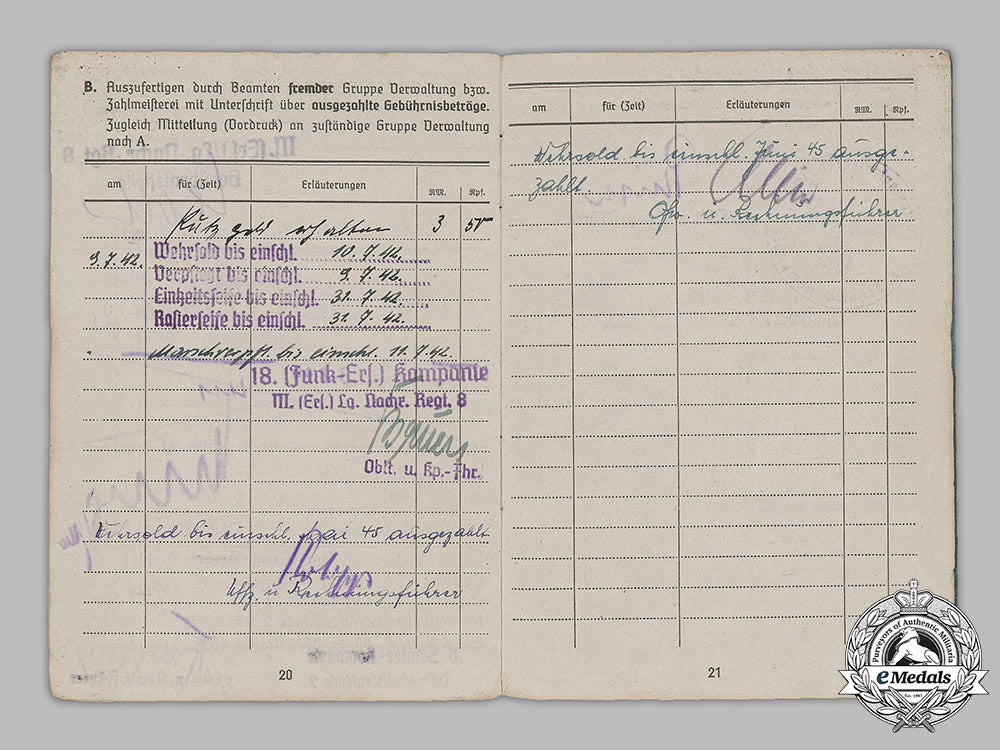 B. Auszufertigen durch Beamten fremder Gruppe Verwaltung bzw.
Zahlmeisterei mit Unterschrift über ausgezahlte Gebührnisbeträge.
Zugleich Mitteilung (Vordruck) an zuständige Gruppe Verwaltung
nach A.
am für (Zeit) Erläuterungen RM. Rpf.
Putzgeld erhalten 3 50
9.7.42. Wehrsold bis einschl. 10.7.42.
Verpflegt bis einschl. 9.7.42.
Einheitsseife bis einschl. 31.7.42.
Rasierseife bis einschl. 31.7.42.
Marschverpfl. bis einschl. 11.7.42.
18. (Funk-Ers.) Kompanie
III. (Ers.) Lg. Nachr. Regt. 8
Oblt. u. Kp.-Fhr.
Wehrsold bis einschl. Mai 45 ausgezahlt
Uffz. u. Rechnungsführer
20
am für (Zeit) Erläuterungen RM. Rpf.
Wehrsold bis einschl. Juni 45 ausge-
zahlt.
u. Rechnungsführer
21
Purveyors of Authentic Militaria
eMedals